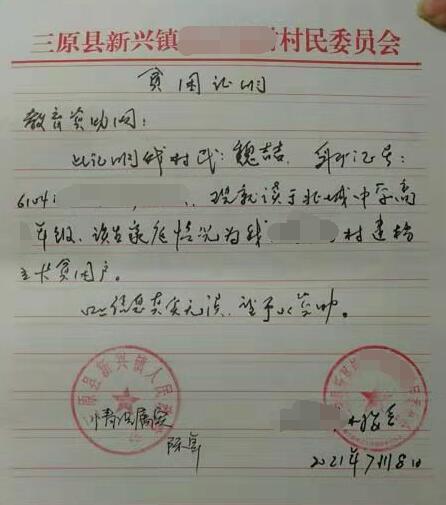 三原县新兴镇 村民委员会
贫困证明
教育资助网：
兹证明我村民：魏喆，身份证号：
6104 ，现就读于北城中学高
年级，该生家庭情况为我 村建档
立卡贫困户。
以上信息真实无误，望予以资助。
三原县新兴镇人民政府
情况属实
2021年7月8日